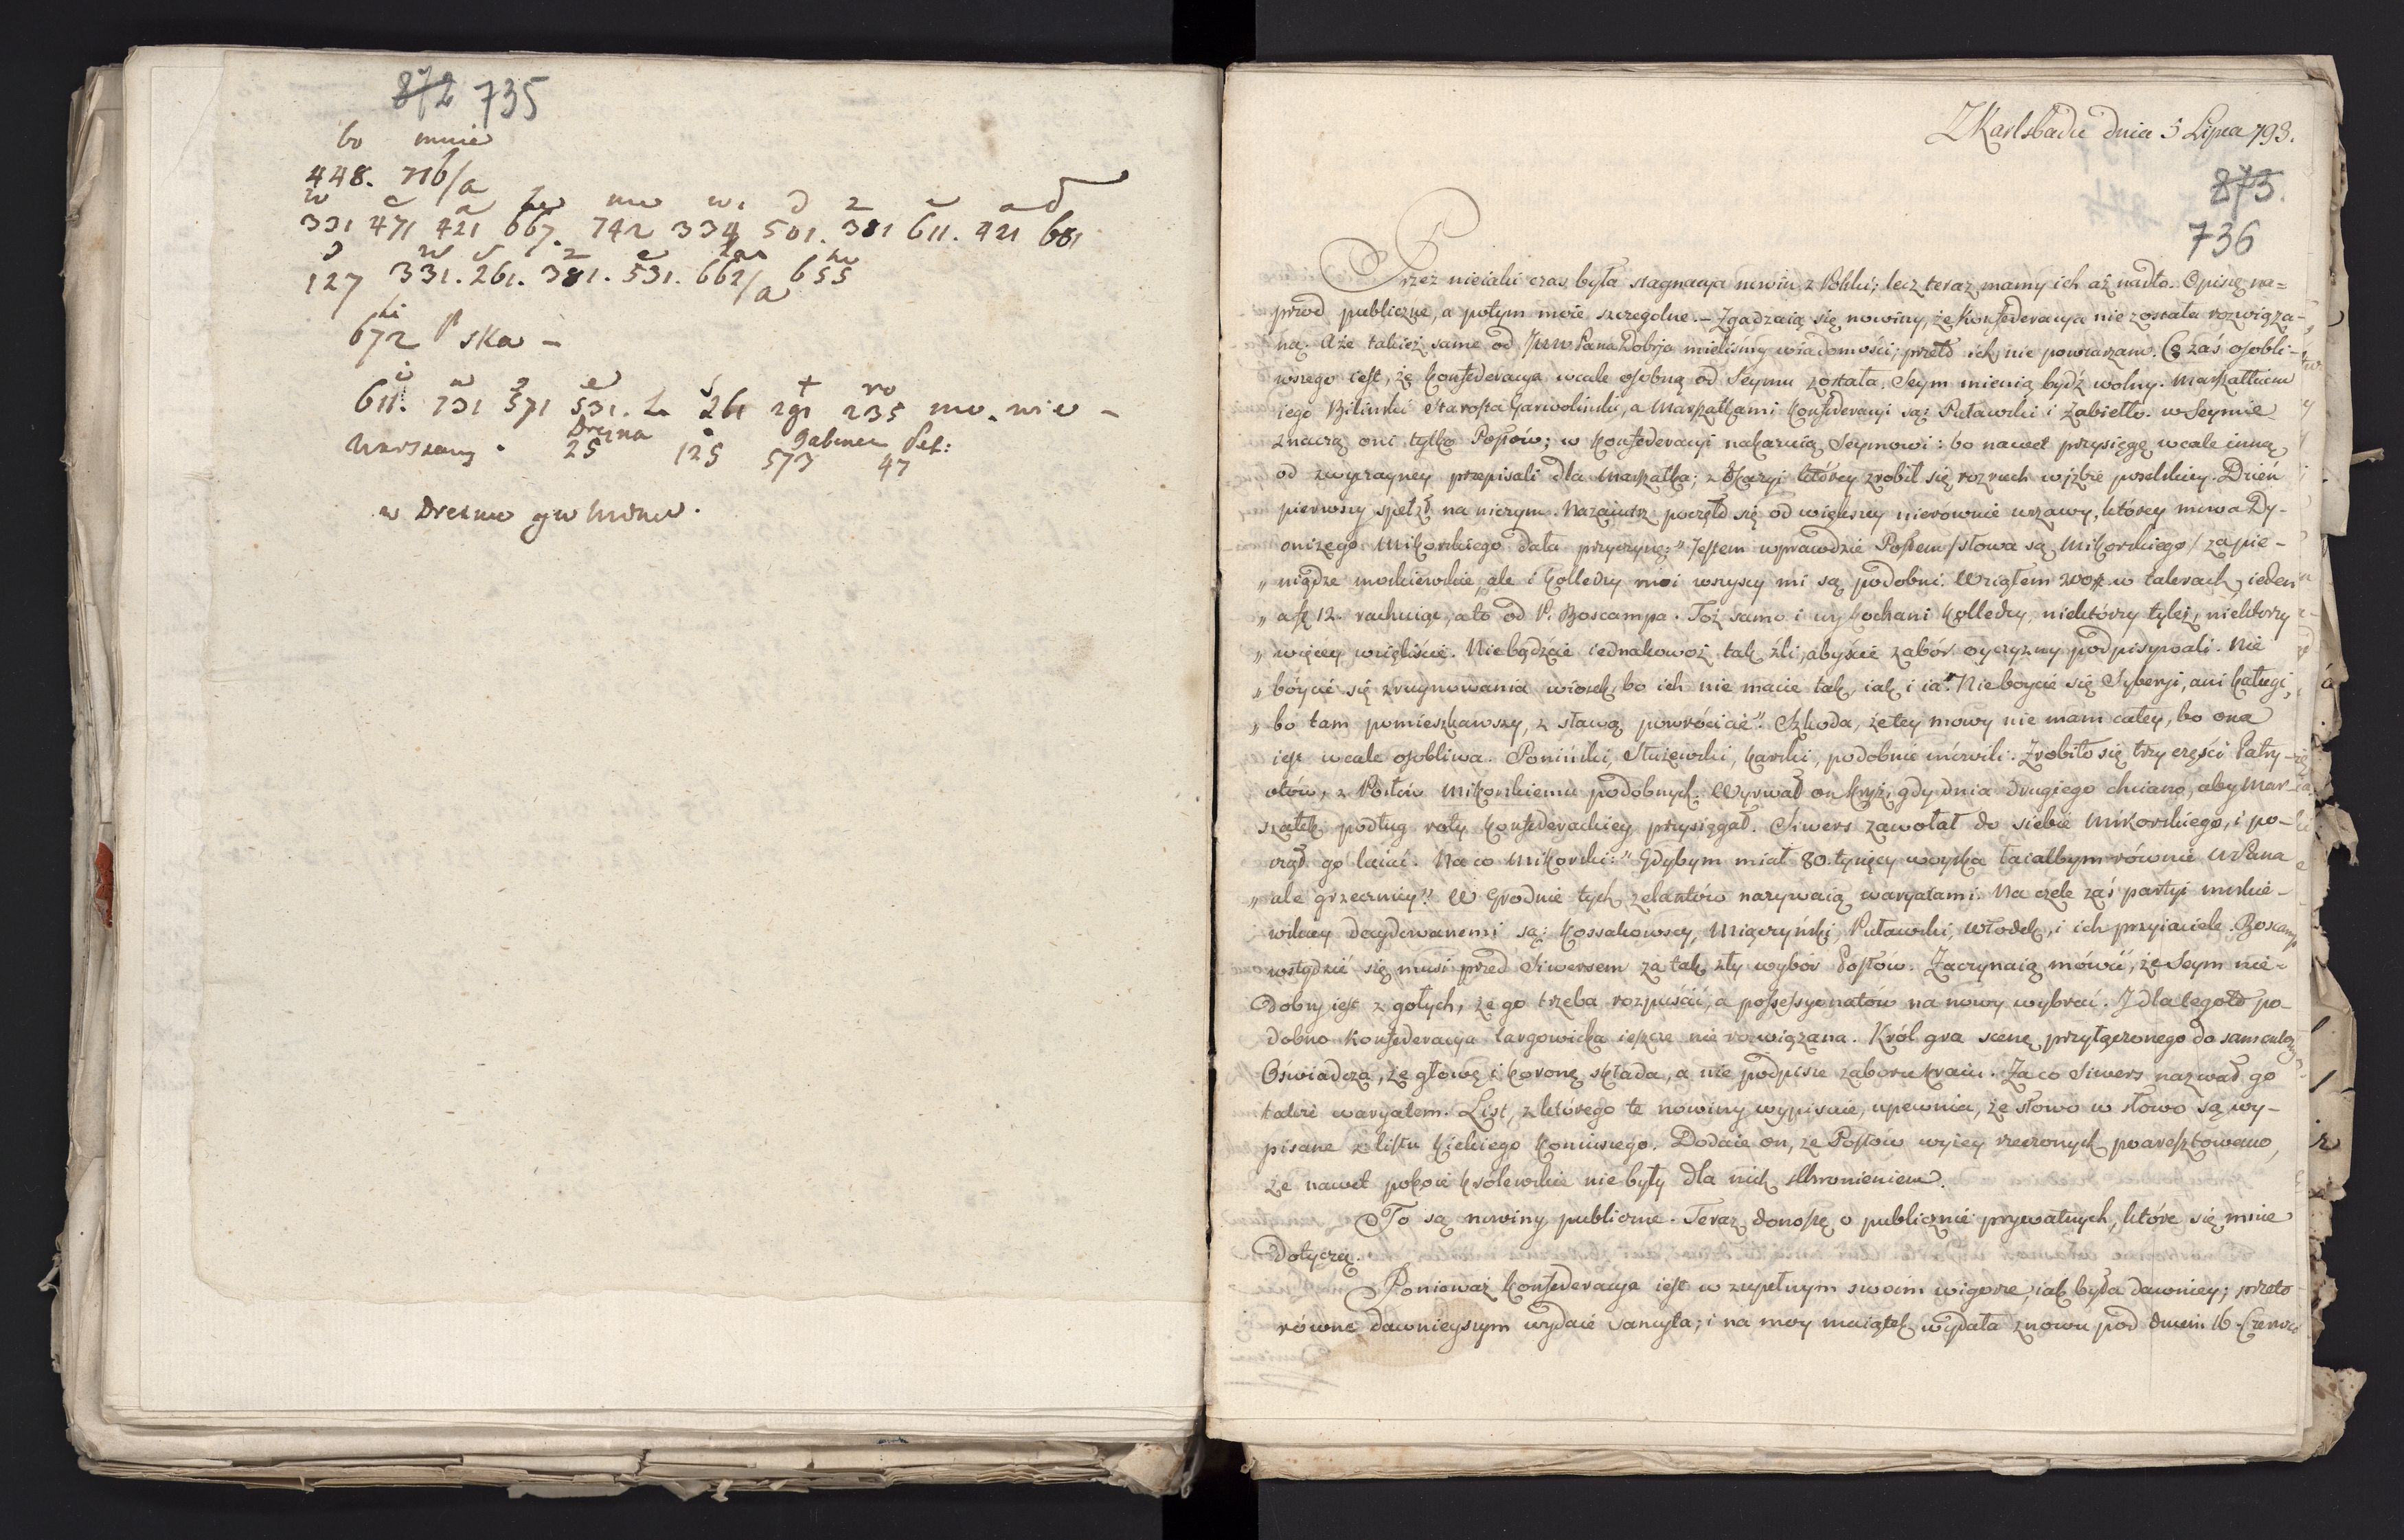 872 735
bo mnie
448. 716/a
331 471 421 667. 742 334 501. 381 611. 421 681
127 331. 261. 381. 531. 662/a 655
672 ska -
611. 731 571 531. 261 291 235 mu. nie -
Drezna gabinet Pet:
Warszawy. 25 125 573 47
w Dreznie
Z Karlsbadu dnia 5 Lipca 793.
873.
736
Przez nieiaki czas była stagnacya nowin z Polski; lecz teraz mamy ich aż nadto. Opiszę na=
przod publiczne, a potym moie szczegolne. - Zgadzaią się nowiny, że konfederacya nie została rozwiąza-
na. A że takież same od JWW Pana Dobrja mieliśmy wiadomości; przeto ich nie powtarzam. Co zaś osobli-
wszego iest, że konfederacya wcale osobną od Seymu została. Seym mienią bydź wolny. Marszałkiem
iego Biliński Starosta Garwoliński, a Marszałkami konfederacyi są: Puławski i Zabiełło. w Seymie
znaczą oni tylko Posłów; w konfederacyi nakazuią Seymowi: bo nawet przysięgę wcale inną
od zwyczayney przepisali dla Marszałka; z okazyi którey zrobił się rozruch w izbie poselskiey. Dzień
pierwszy spełzł na niczym. Nazaiutrz poczęło się od większey nierownie wrzawy, którey mowa Dy-
onizego Mikorskiego dała przyczynę: "Jestem wprawdzie Posłem /słowa są Mikorskiego/ za pie-
„ niądze moskiewskie, ale i kolledzy moi wszyscy mi są podobni. Wziąłem 200# w talerach, ieden
„ a zł 12. rachuiąc, a to od P. Boscampa. Toż samo i wy kochani kolledzy, niektórzy tyleż, niektorzy
„ więcey wzięliście. Nie bądźcie iednakowoż tak źli, abyście zabór oyczyzny podpisywali. Nie
„ bóycie się zruynowania wiosek, bo ich nie macie tak, iak i ia. Nie boycie się Syberyi, ani Kaługi,
„ bo tam pomieszkawszy, z sławą powrócicie". Szkoda, że tey mowy nie mam całey, bo ona
iest wcale osobliwa. Poniński, Służewski, Karski, podobnie mówili. Zrobiło się trzy części Patry-
otów, z Posłów Mikorskiemu podobnych. Wyrwał on krzyż, gdy dnia drugiego chciano, aby Mar-
szałek podług roty konfederackiey przysięgał. Siwers zawołał do siebie Mikorskiego, i po-
czął go łaiać. Na co Mikorski: "Gdybym miał 80. tysięcy woyska łaiałbym równie WPana
„ ale grzeczniey". W Grodnie tych zelantów nazywaią waryatami. Na czele zaś partyi moskie-
wskiey decydowanemi są: Kossakowscy, Miączyński, Puławski, Włodek, i ich przyiaciele. Boscamp
wstydzić się musi przed Siwersem za tak zły wybór Posłów. Zaczynaią mówić, że Seym nie-
dobry iest z gołych, że go trzeba rozpuścić, a possessyonatów na nowy wybrać. I dla tegoto po-
dobno Konfederacya targowicka ieszcze nie rozwiązana. Król gra scenę przyłączonego do
Oświadcza, że głowę i koronę składa, a nie podpisze zaboru kraiu. Za co Siwers nazwał go
także waryatem. List, z którego te nowiny wypisuię, upewnia, że słowo w słowo są wy-
pisane z listu Kickiego Koniuszego. Dodaie on, że Posłów wyżey rzeczonych poaresztowano,
że nawet pokoie królewskie nie były dla nich schronieniem.
To są nowiny publiczne. Teraz donoszę o publicznie prywatnych, które się mnie
dotyczą.
Ponieważ konfederacya iest w zupełnym swoim wigorze, iak była dawniey; przeto
równe dawnieyszym wydaie sancyta; i na moy maiątek wydała znowu pod dniem 16. Czerwca